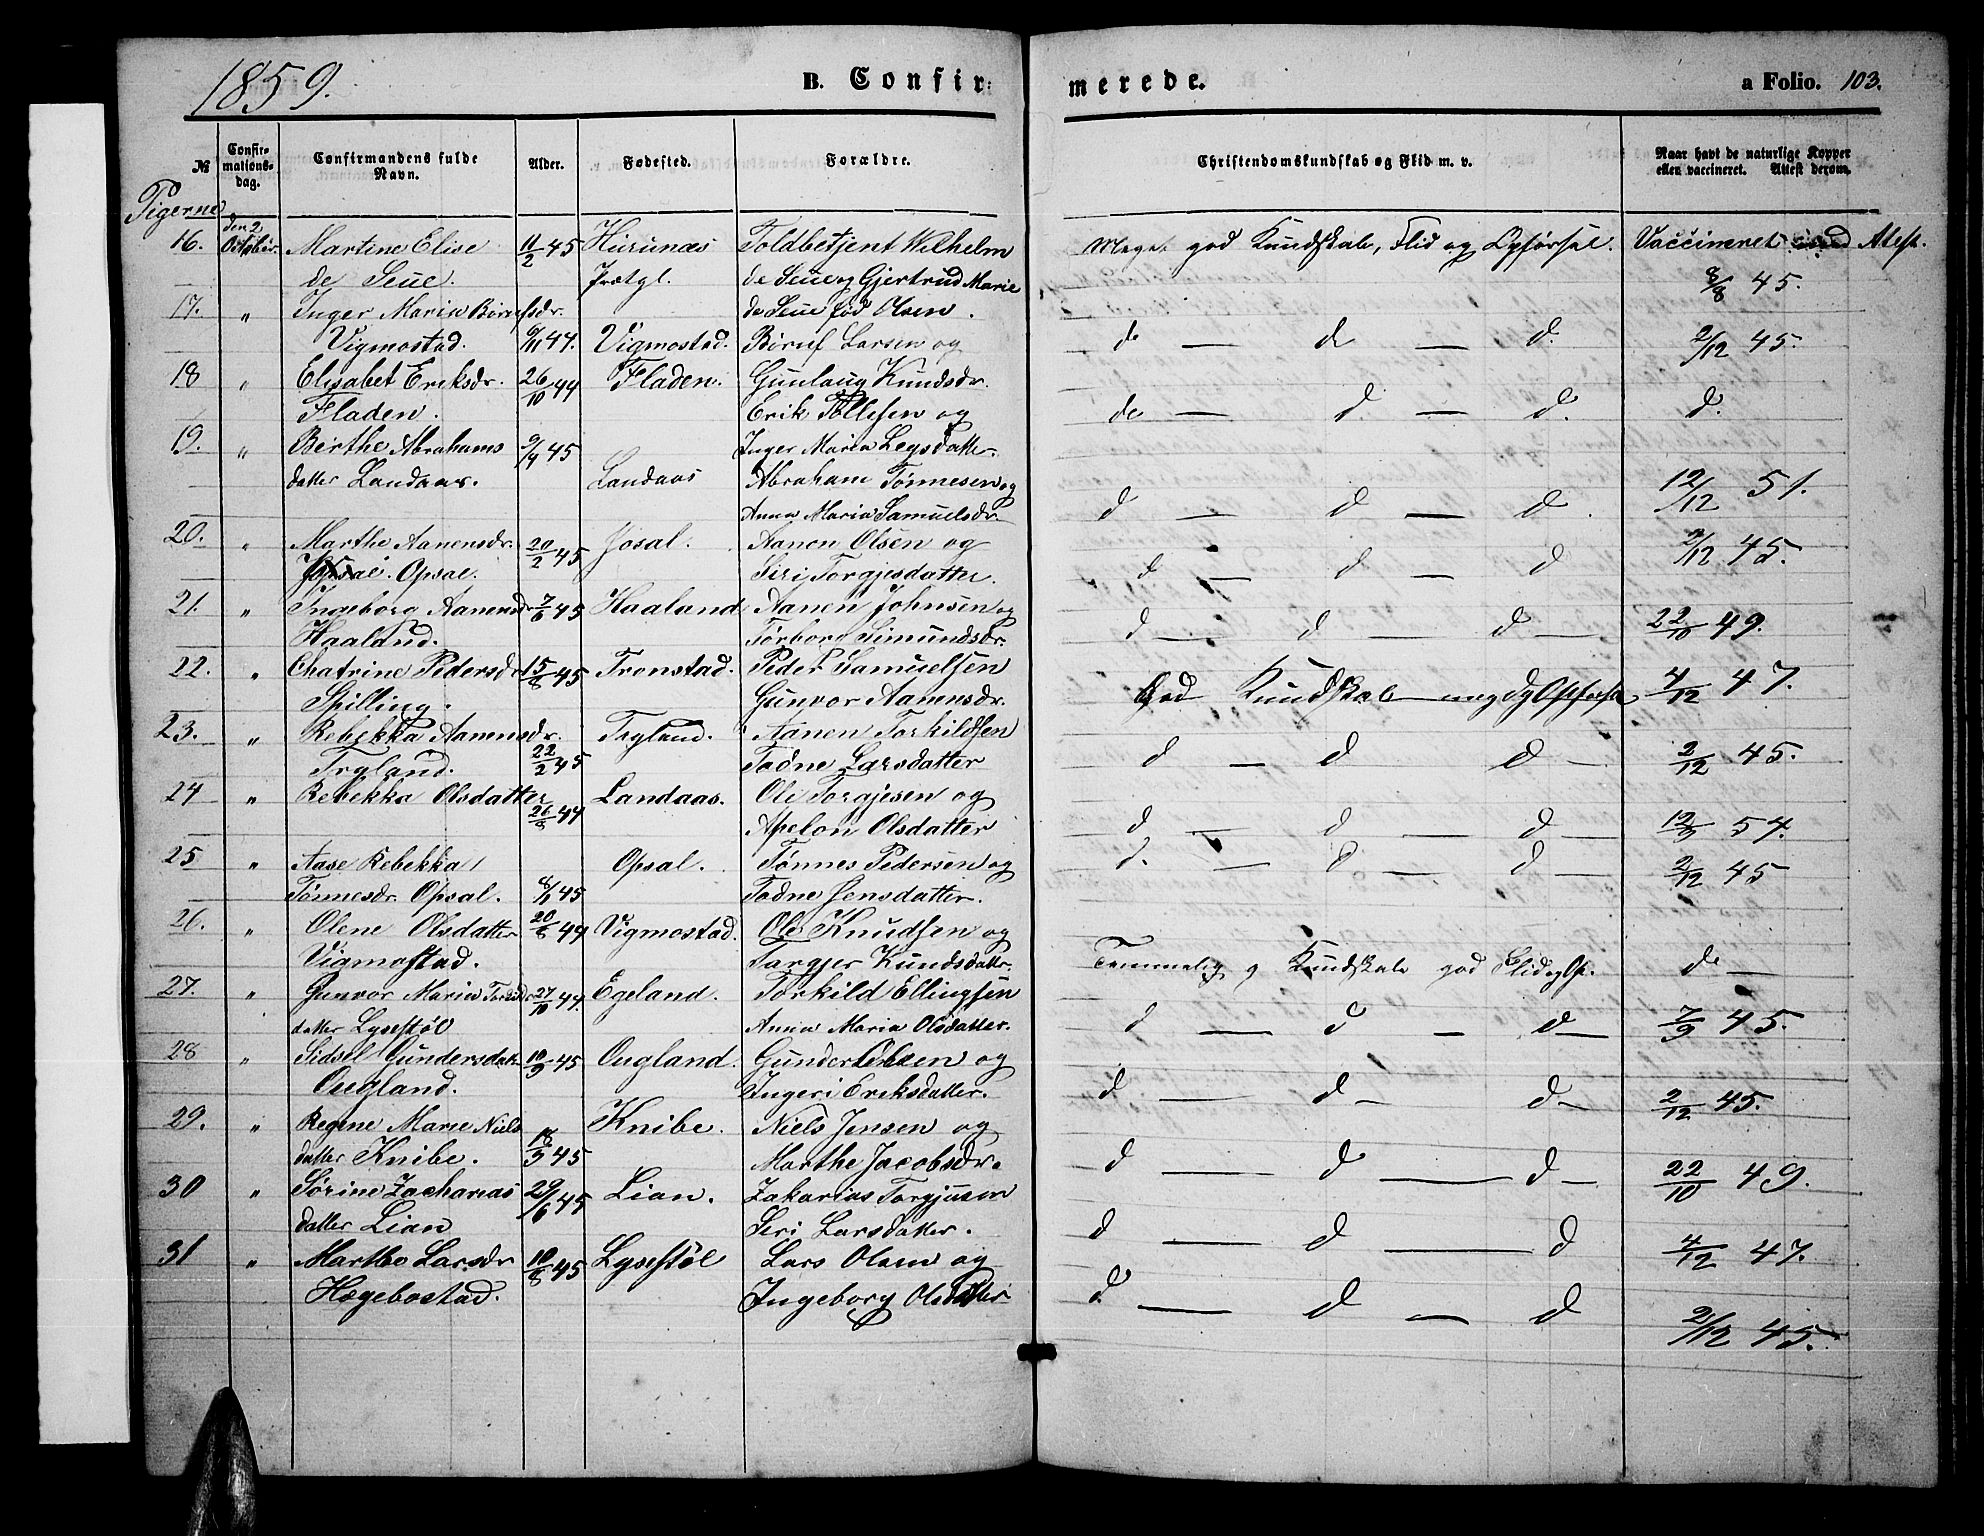 1859.
B. Confir:
merede.
a Folio. 103.
№
Confir-
mations-
dag.
Confirmandens fulde
Navn.
Alder.
Fødested.
Forældre.
Christendomskundskab og Flid m. v.
Naar havt de naturlige Kopper
eller vaccineret. Attest derom.
Pigerne
16. den 2 October Martine Elise 11/2 45 Toldbetjent Wilhelm Meget god Kundskab, Flid og Opførsel. Vaccineret Atest.
de Seue. Prætgl. de Seue og Gjertrud Marie 8/8 45.
17. „ Inger Maria Børufsdr. de Seue fød Olsen.
Vigmostad. 9/11 44. Vigmostad. Børuf Larsen og d — d — d. 2/12 45.
18 „ Elisabet Eriksdr. 26/10 44 Fladen. Gunlaug Knudsdr.
Fladen. Erik Tollefsen og d — d — d. d.
19. „ Berthe Abrahams 9/4 45 Inger Maria datter.
datter Landaas. Landaas Abraham Tønnesen og 12/12 51.
Anna Maria Samuelsdr. d — d — d.
20. „ Marthe Aanensdr. 20/2 45 Josal. Aanen Olsen og 2/12 45.
Opsal. Siri Torgjesdatter. d — d — d
21. „ Ingeborg Aanensdr 7/6 45 Haaland Aanen Johnsen og d — d — d — 22/10 49.
Haaland. Tørborg Simundsdr.
22. „ Chatrine Pedersdr 15/8 45 Tronstad. Peder Samuelsen God Kundskab 4/12 47.
Spilling. Gunvor Aanensdr.
23. „ Rebekka Aanensdr. Trgland. Aanen Torkildsen
Trgland. 22/2 45 Todne Larsdatter d — d d — 2/12 45.
24 „ Rebekka Olsdatter Landaas. Ole Torgjesen og
26/8 44 Aselon Olsdatter d — d — d — 54.
25 „ Aase Rebekka Opsal. Tønnes Pedersen og d. — d — d — 2/12 45
Tønnesdr. Opsal. 45 Todne Jensdatter.
26. „ Olene Olsdatter 20/8 44 Vigmostad. Ole Knudsen og
Vigmostad. Targjer Knudsdattr. Temmelig g Kundskab god Flid og Op. d —
27. „ Gunvor Maria 27/10 44. Egeland. Torkild Ellingsen
datter Lysestøl Anna Maria Olsdatter. d — d — d — 7/9 45.
28 „ Sidsel Gundersdatter 10/9 45 Ougland. Gunder Olsen og
Ougland. Ingeri Eriksdatter. d — d — d — 2/12 45.
29. „ Regine Marie Niels Knibe. Niels Jensen og
datter Knibe. 18/3 45 Marthe Jacobsdr. d — d — d — 22/10 49.
30 „ Sørine Zacharias 29/6 45 Lian. Zakarias Torgjusen
datter Lian Seri Larsdatter. d — d — d 4/12 47.
31 „ Marthe Larsdr 10/8 45 Lysestøl Lars Olsen og
Hægebostad. Ingeborg Olsdatter d. — d — d 2/12 45.